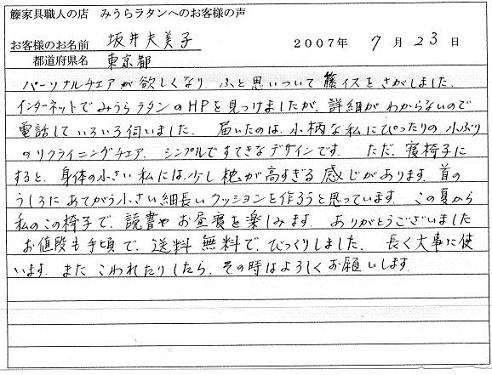 籐家具職人の店 みうらラタンへのお客様の声
お客様のお名前 坂井夫美子 2007年 7月23日
都道府県名 東京都
パーソナルチェアが欲しくなり、ふと思いついて籐イスをさがしました。
インターネットでみうらラタンのHPを見つけましたが、詳細がわからないので
電話していろいろ伺いました。届いたのは、小柄な私にぴったりの小ぶり
のリクライニングチェア、シンプルですてきなデザインです。ただ、寝椅子に
すると、身体の小さい私には少し枕が高すぎる感じがあります。首の
うしろにあてがう小さい細長いクッションを作ろうと思っています。この夏から
私のこの椅子で、読書やお昼寝を楽しみます。ありがとうございました
お値段も手頃で、送料無料で、びっくりしました。長く大事に使
います。またこわれたりしたら、その時はよろしくお願いします。